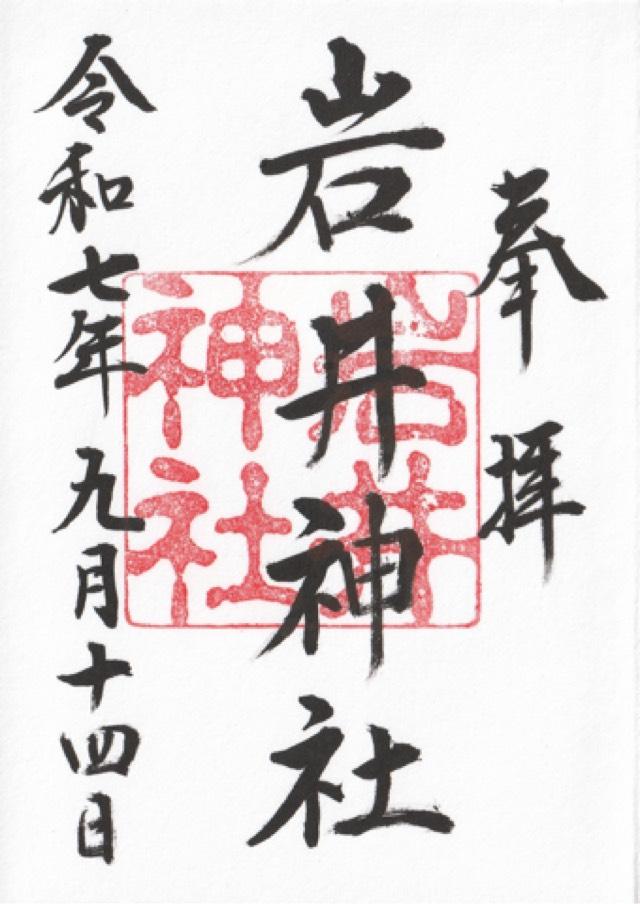 奉拝
岩井神社
岩井神社
令和七年九月十四日